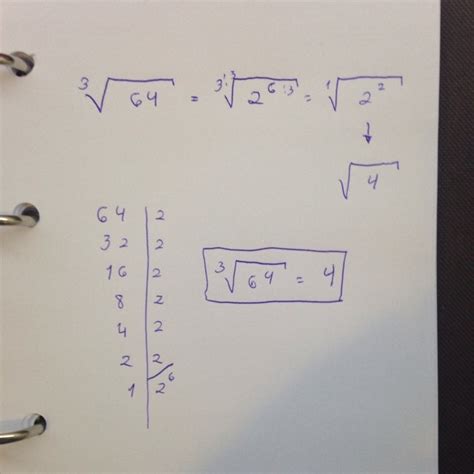 ³√64 = ³:³√2⁶:³ = ¹√2²
↓
√4
64 | 2
32 | 2
16 | 2
8 | 2
4 | 2
2 | 2
1 | 2⁶
³√64 = 4